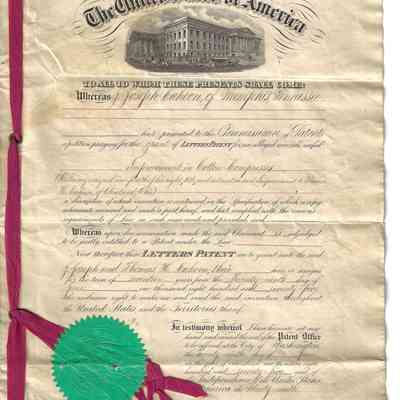 The United States of America
TO ALL TO WHOM THESE PRESENTS SHALL COME:
Whereas J. Joseph Cahoon, of Memphis, Tennessee
has presented to the Commissioner of Patents
a petition praying for the grant of LETTERS PATENT for an alleged new and useful
Improvement in Cotton Compresses
a description of which invention is contained in the Specification of which a copy
is hereunto annexed and made a part hereof, and has complied with the various
requirements of Law in such cases made and provided, and
Whereas upon due examination made the said Claimant is adjudged
to be justly entitled to a Patent under the Law.
Now therefore these LETTERS PATENT are to grant unto the said
J. Joseph and Thomas H. Cahoon, their heirs or assigns
for the term of seventeen years from the twenty ninth day of
one thousand eight hundred and seventy five
the exclusive right to make use and vend the said invention throughout
the United States and the Territories thereof.
In testimony whereof I have hereunto set my
hand and caused the seal of the Patent Office
to be affixed at the City of Washington
Independence of the United States
of America the ninety ninth